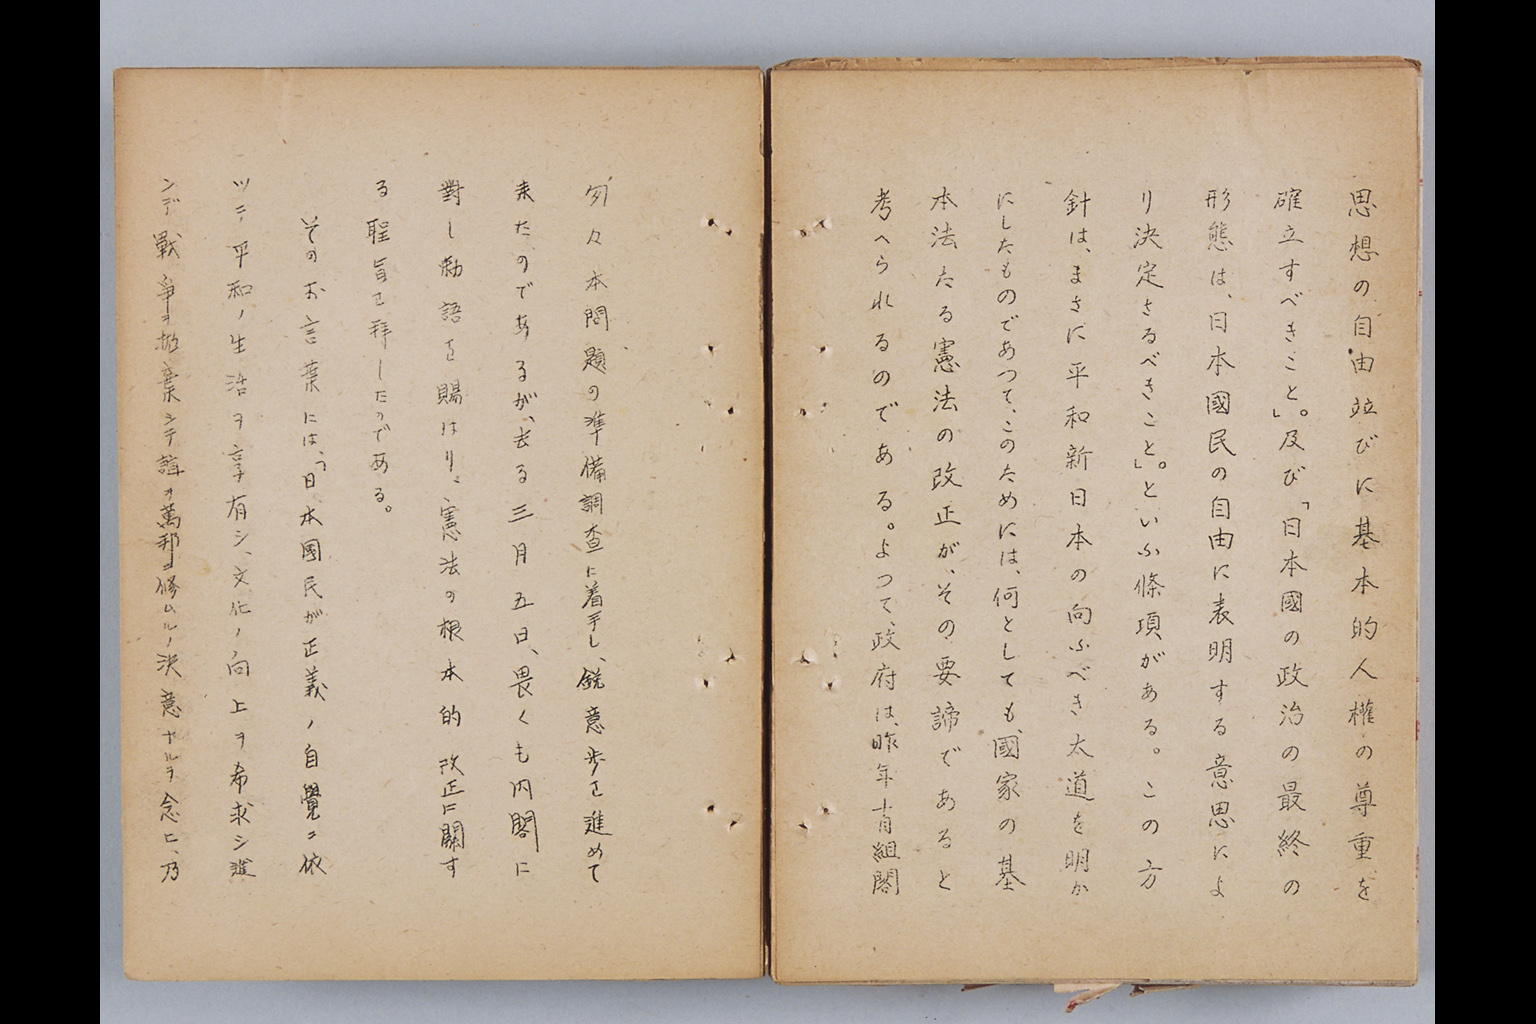 思想の自由並びに基本的人權の尊重を
確立すべきこと」。及び「日本國の政治の最終の
形態は、日本國民の自由に表明する意思によ
り決定さるべきこと」。といふ條項がある。この方
針は、まさに平和新日本の向ふべき太道を明か
にしたものであつて、このためには、何としても、國家の基
本法たる憲法の改正が、その要諦であると
考へられるのである。よつて、政府は、昨年十月組閣
匆々本問題の準備調査に着手し、銳意歩を進めて
来たのであるが、去る三月五日、畏くも内閣に
對し勅語を賜はり、憲法の根本的改正に關す
る聖旨を拜したのである。
そのお言葉には、「日本國民が正義ノ自覺ニ依
ツテ平和ノ生活ヲ享有シ、文化ノ向上ヲ希求シ進
ンデ戰爭ヲ抛棄シテ誼ヲ萬邦ニ修ムルノ決意ナルヲ念ヒ、乃